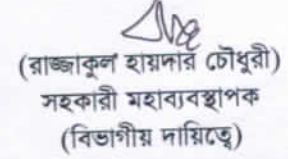 (রাজ্জাকুল হায়দার চৌধুরী)
সহকারী মহাব্যবস্থাপক
(বিভাগীয় দায়িত্বে)